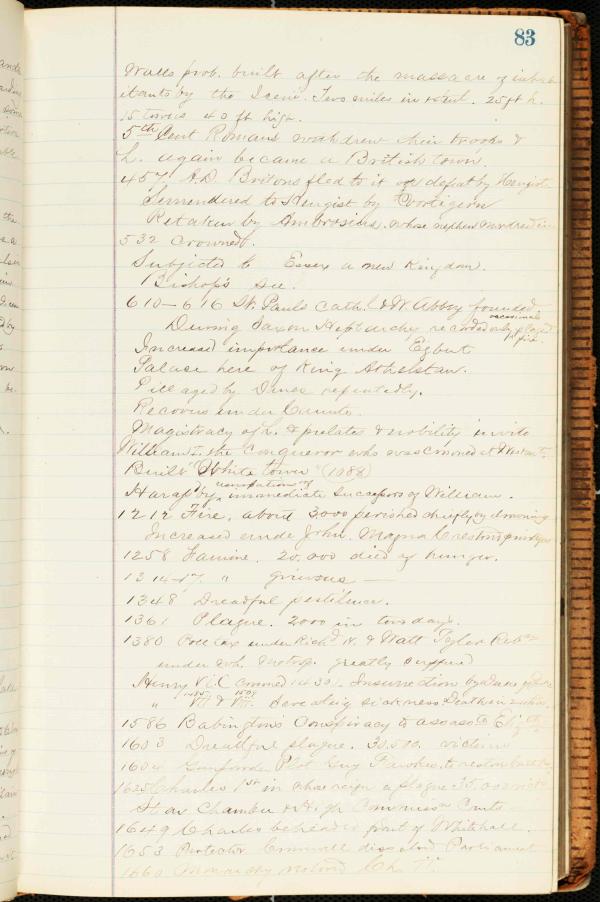 83
Walls prob. built after the massacre of inhab
itants by the Iceni. Two miles in extent. 25 ft h.
15 towers 40 ft high.
5th Cent Romans withdrew their troops &
L. again became a British town.
457 A.D. Britons fled to it defeat by Hengist
Surrendered to Hengist by Vortigern
Retaken by Ambrosius, whose nephew Mordred in
532 crowned.
Subjected to Essex a new Kingdom.
Bishop's see.
610–616 St. Pauls Cath. & W. Abbey founded
During Saxon Heptarchy recorded only occasional plague fire.
Increased importance under Egbert
Palace here of King Athelstan.
Pillaged by Danes repeatedly.
Recovers under Canute.
Magistracy of L. & prelates & nobility invite
William I the Conqueror who was crowned at Westm
Built "White tower" (1088)
by immediate successors of William.
1212 Fire, about 3000 perished chiefly by drowning
Increased under John. Magna
1258 Famine. 20,000 died of hunger.
1314-17 " grievous —
1348 Dreadful pestilence.
1361 Plague. 2000 in two days.
1380 Poll tax under Richd II. & Watt Tyler Rebn
under wh. greatly suffered
Henry VI crowned Insurrection by
" VII 1485 & VIII 1509 sickness
1586 Babington's Conspiracy to assass Elizth
1603 Dreadful plague. 30,500 victims
1604 Gunpowder Plot Guy Fawkes, to restore
1625 Charles 1st in whose reign a plague 35,000
Star Chamber & High Commission Courts
1649 Charles beheaded front of Whitehall.
1653 Protector Cromwell dissolved Parliament
1660 Monarchy restored Ch. II.